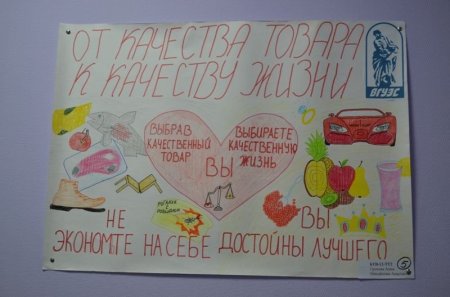 ОТ КАЧЕСТВА ТОВАРА
К КАЧЕСТВУ ЖИЗНИ
ВГУЭС
ВЫБРАВ
КАЧЕСТВЕННЫЙ
ТОВАР
ВЫ
ВЫБИРАЕТЕ
КАЧЕСТВЕННУЮ
ЖИЗНЬ
НЕ
ЭКОНОМТЕ НА СЕБЕ
ВЫ
ДОСТОЙНЫ ЛУЧШЕГО
5